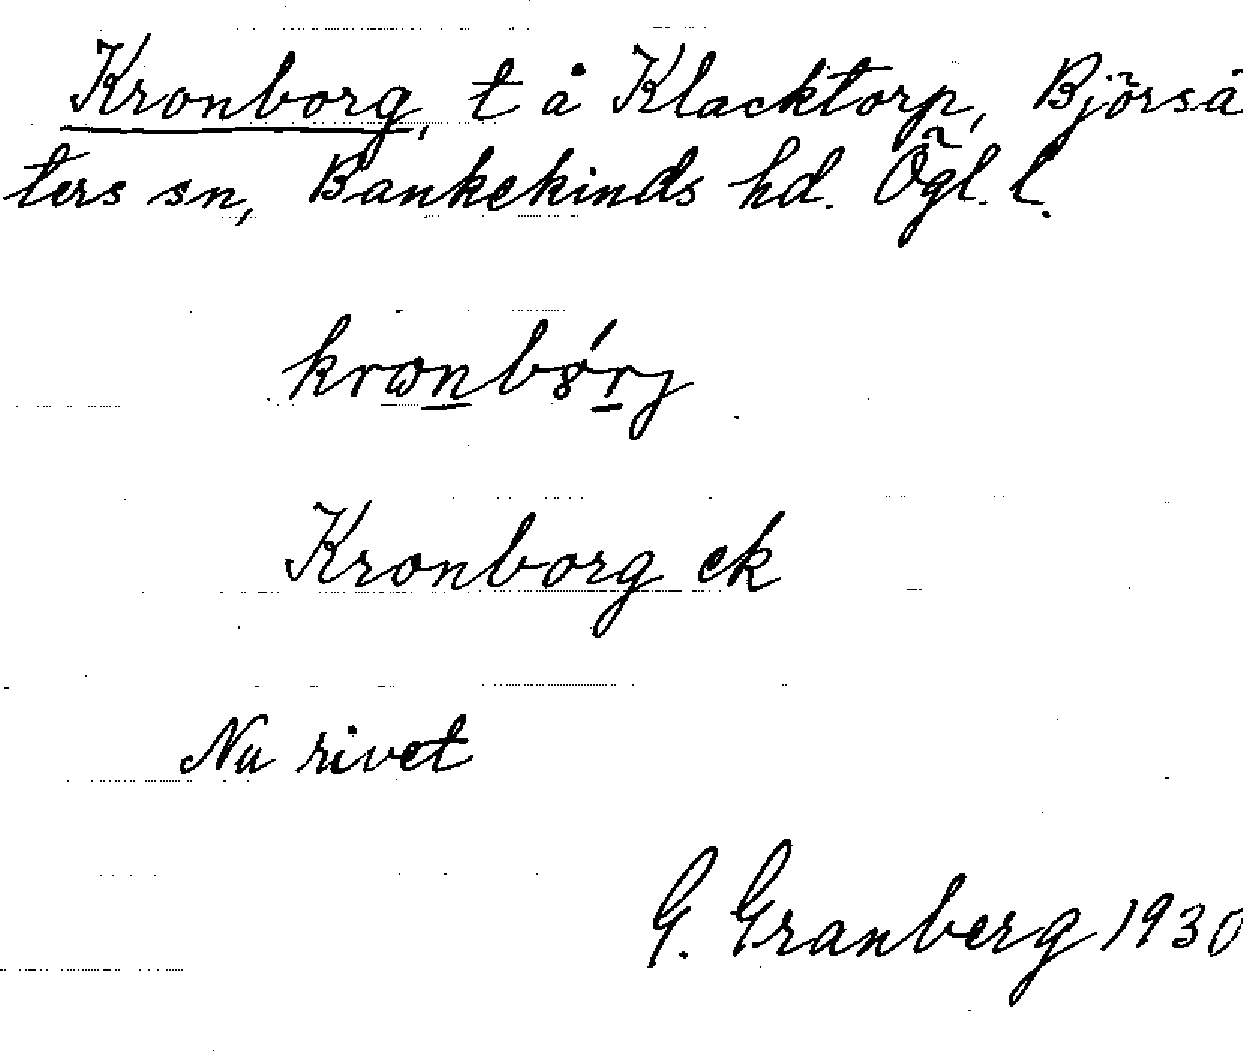 Kronborg, t å Klacktorp, Björså
ters sn, Bankekinds hd. Ögl. l.
Kronborg ek
Nu rivet
G. Granberg 1930